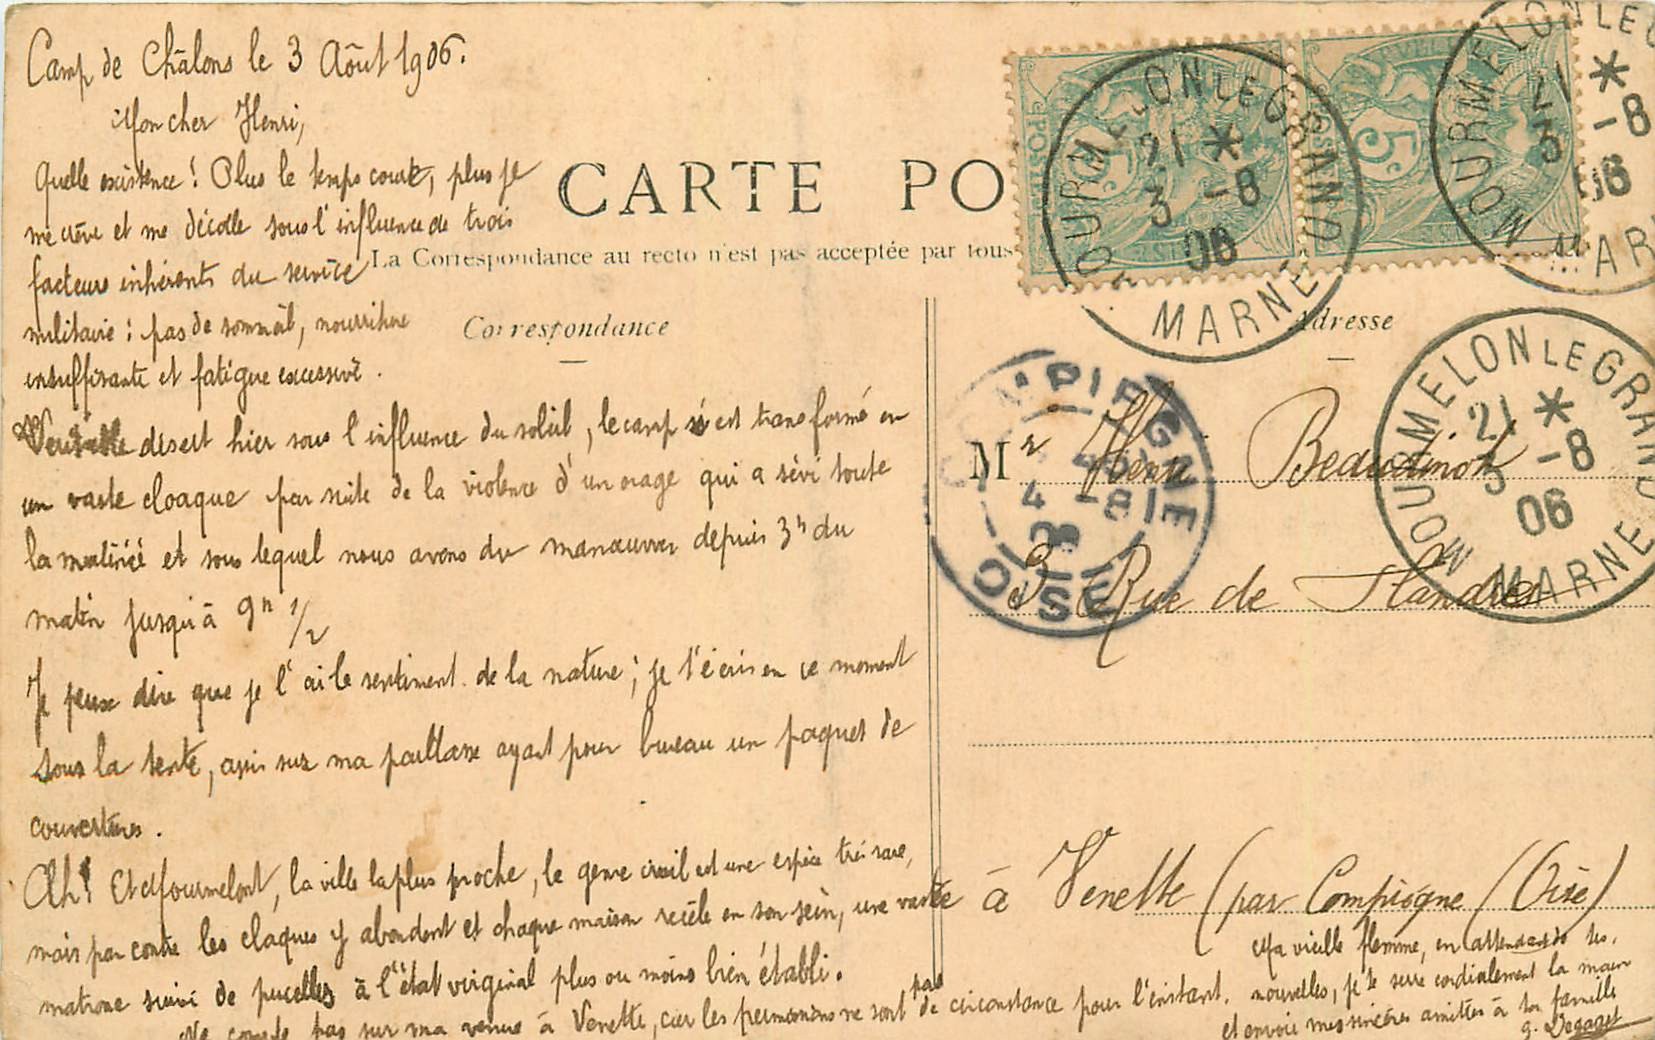 Camp de Châlons le 3 Août 1906.
Mon cher Henri,
Quelle existence ! Plus le temps court, plus je
me crève et me décolle sous l'influence de trois
facteurs inhérents du service
militaire : pas de sommeil, nourriture
insuffisante et fatigue excessive.
Véritable désert hier sous l'influence du soleil, le camp s'est transformé en
un vaste cloaque par suite de la violence d'un orage qui a sévi toute
la matinée et sous lequel nous avons dû manœuvrer depuis 3h du
matin jusqu'à 9h 1/2
Je peux dire que je l'ai le sentiment de la nature ; je t'écris en ce moment
sous la tente, assis sur ma paillasse ayant pour bureau un paquet de
couvertures.
Ah ! Et Mourmelont, la ville la plus proche, le genre civil est une espèce très rare,
mais par contre les claques y abondent et chaque maison recèle en son sein, une vaste
matrone suivi de pucelles à l'état virginal plus ou moins bien établi.
Ne compte pas sur ma venue à Venette, car les permissions ne sont pas de circonstance pour l'instant.
Ma vieille flemme, en attendant de tes
nouvelles, je te serre cordialement la main
et envoie mes sincères amitiés à ta famille
G. Degaget
CARTE PO
La Correspondance au recto n'est pas acceptée par tous
Correspondance
Adresse
Mr Henri Beaudinot
3 Rue de Flandres
à Venette (par Compiègne (Oise)
POSTES
5c
5c
MOURMELON LE GRAND
21 *
3 -8
06
MARNE
MOURMELON LE GRAND
21 *
3 -8
06
MARNE
MOURMELON LE GRAND
21 *
3 -8
06
MARNE
COMPIEGNE
4 -8
06
OISE